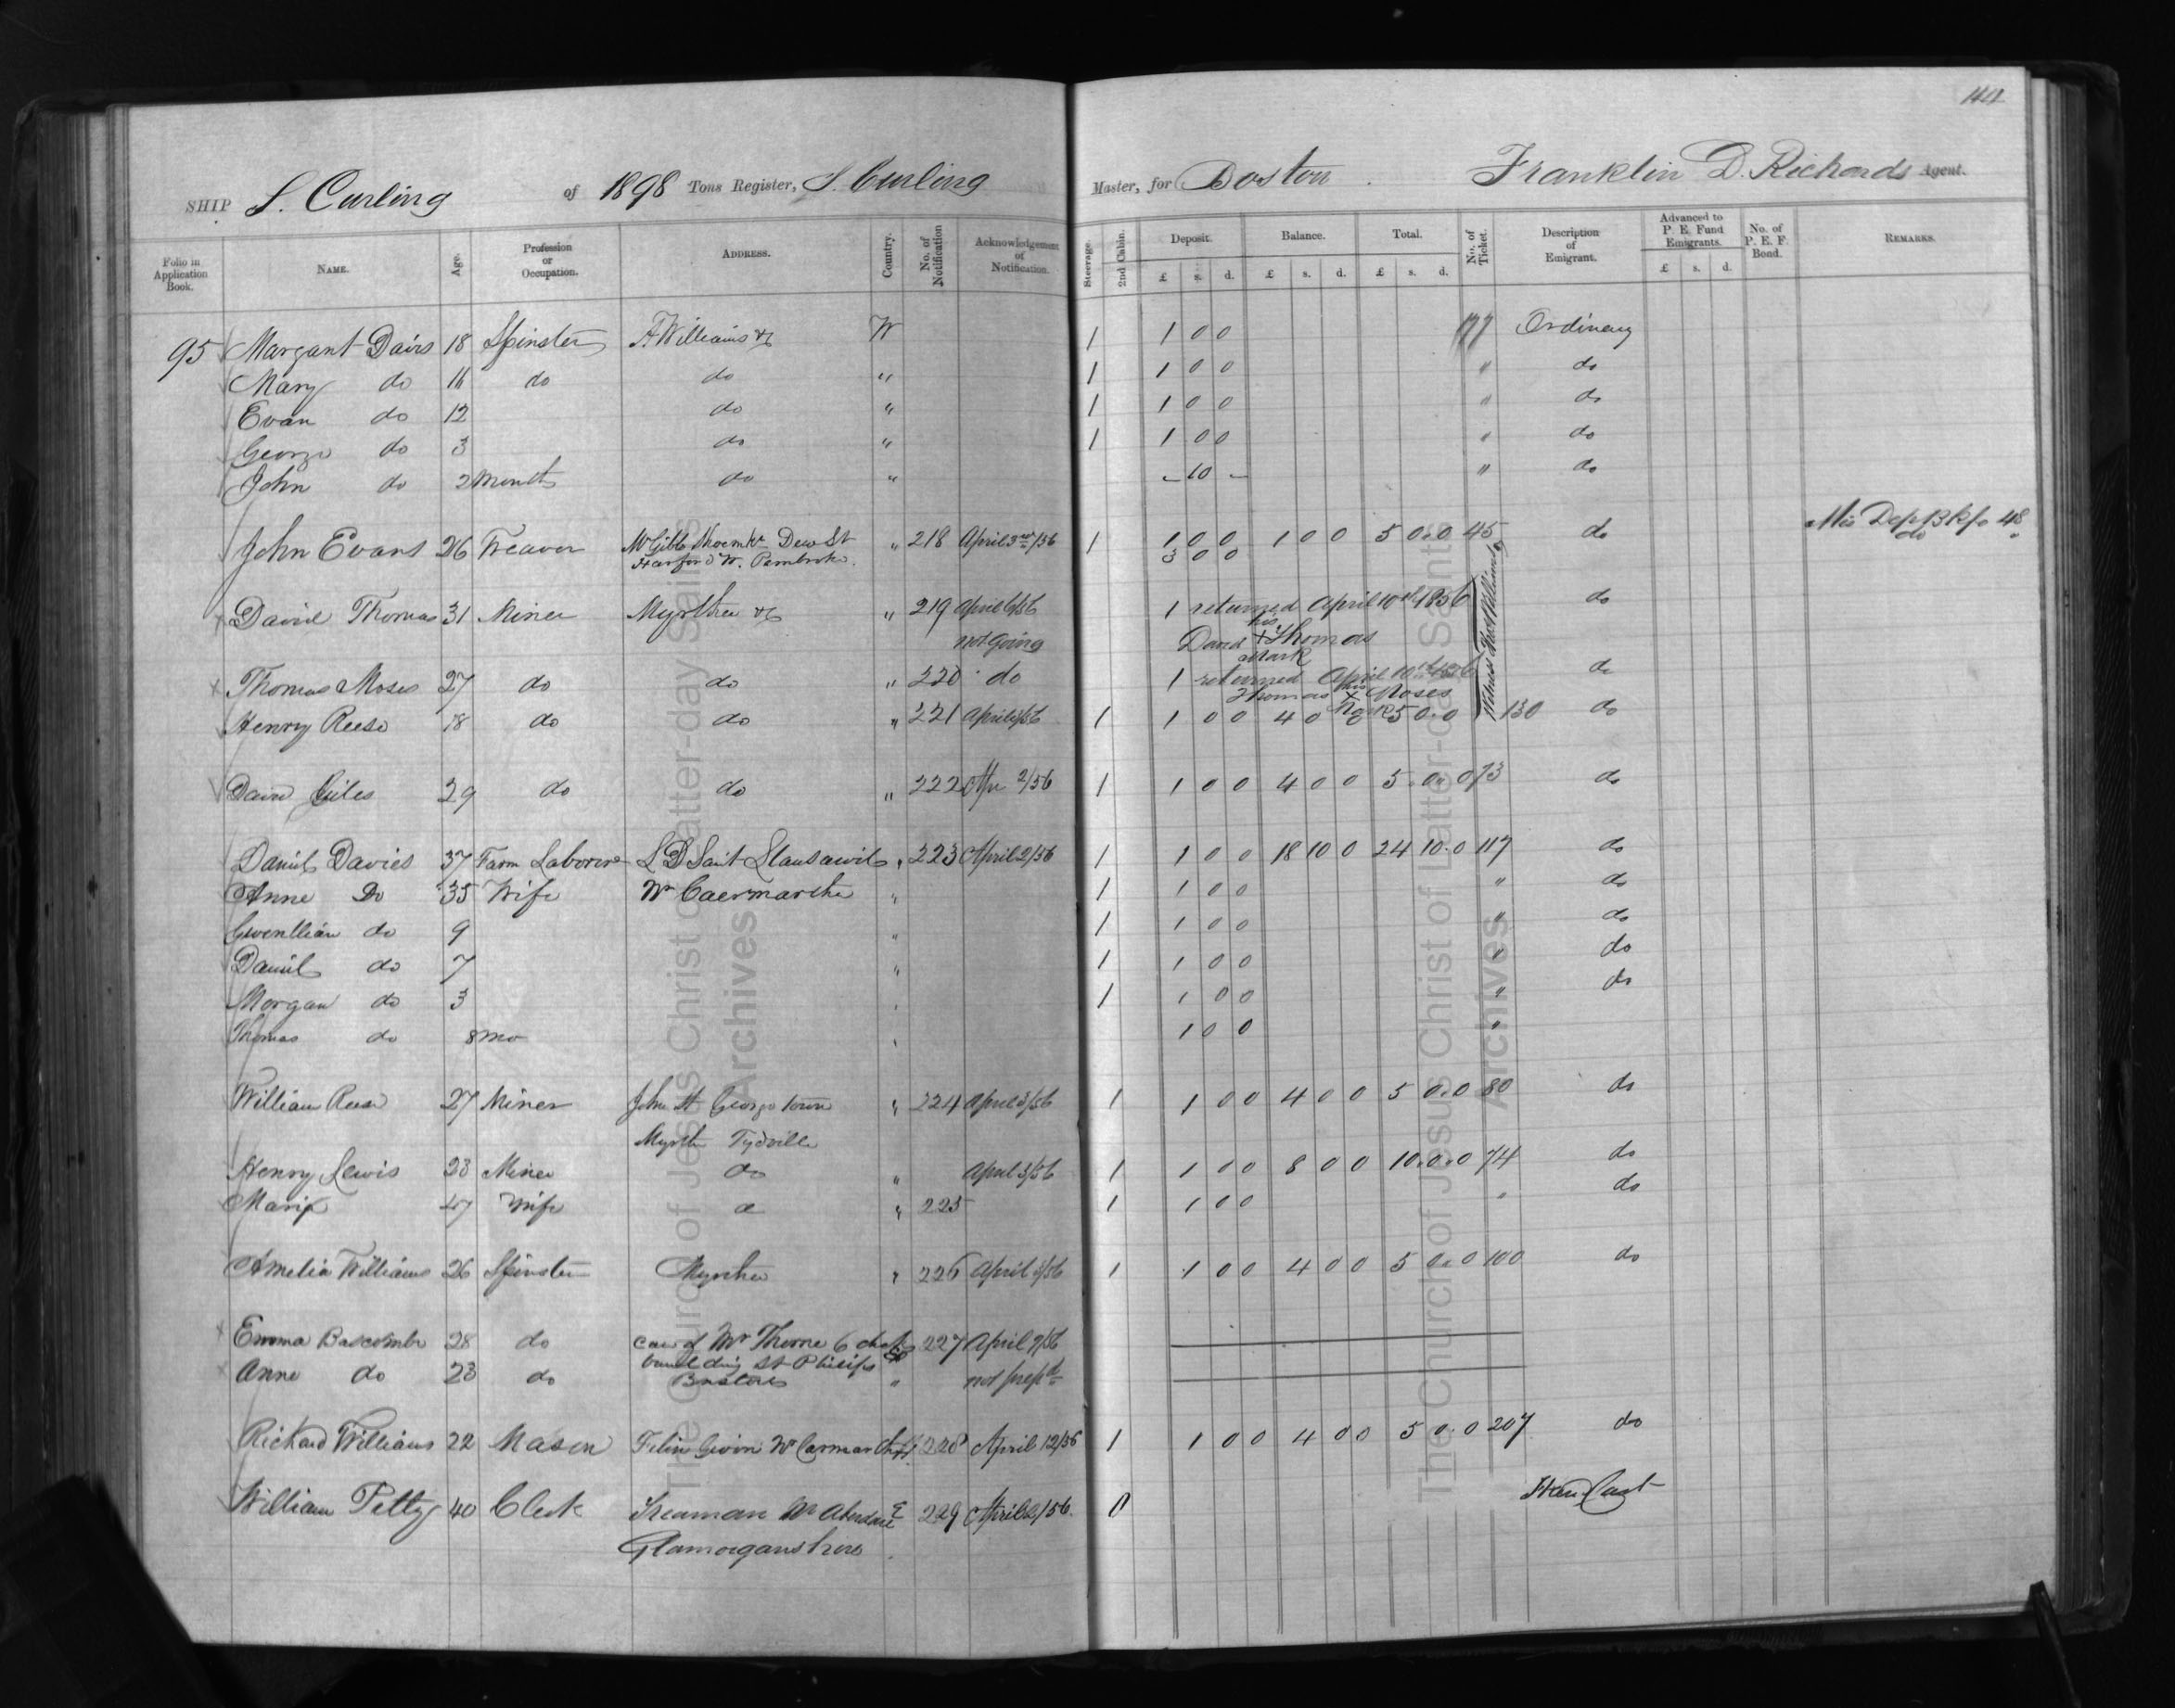 144
SHIP S. Curling of 1898 Tons Register, S. Curling Master, for Boston . Franklin D. Richards Agent.
Folio in Application Book. NAME. Age. Profession or Occupation. ADDRESS. Country. No. of Notification Acknowledgement of Notification. Steerage. 2nd Cabin. Deposit. £ s. d. Balance. £ s. d. Total. £ s. d. No. of Ticket. Description of Emigrant. Advanced to P. E. Fund Emigrants. £ s. d. No. of P. E. F. Bond. REMARKS.
95 Margant Davis 18 Spinster A. Williams W 1 1 0 0 177 Ordinary
Mary do 16 do do " 1 1 0 0 " do
Evan do 12 do " 1 1 0 0 " do
George do 3 do " 1 1 0 0 " do
John do 2 Months do " - 10 - " do
John Evans 26 Weaver Mr Gibb Shoemkr Dew St " 218 April 3rd/56 1 1 0 0 1 0 0 5 0.0 45 do Mis Dep Bk fo 48
Harford W. Pembroke. 3 0 0 do "
David Thomas 31 Miner Myrther " 219 April 6/56 1 returned April 10th 1856 do
not going David his X mark Thomas
Thomas Moses 27 do do " 220 do 1 returned April 10th 1856 do
Thomas his X Mark Moses
Witness Thos Williams
Henry Reese 18 do do " 221 April 4/56 1 1 0 0 4 0 0 5 0.0 130 do
David Giles 29 do do " 222 Apr 2/56 1 1 0 0 4 0 0 5.0.0 73 do
Daniel Davies 37 Farm Laborer L D Sait Llansawil " 223 April 2/56 1 1 0 0 18 10 0 24 10.0 117 do
Anne Do 35 Wife Nr Caermarthe " 1 1 0 0 " do
Gwenllian do 9 " 1 1 0 0 " do
Daniel do 7 " 1 1 0 0 " do
Morgan do 3 " 1 1 0 0 " do
Thomas do 8 mo " 1 0 0 "
William Rees 27 Miner John St George town " 224 April 3/56 1 1 0 0 4 0 0 5 0.0 80 do
Myrth Tydville
Henry Lewis 23 Miner do " April 3/56 1 1 0 0 8 0 0 10.0.0 74 do
Maria 47 Wife do " 225 1 1 0 0 " do
Amelia Williams 26 Spinster Myrther " 226 April 3/56 1 1 0 0 4 0 0 5 0.0 100 do
Emma Bascombe 28 do care of Mr Thorne 6 227 April 9/56
Anne do 23 do building St Philips Bristol " not prepd
Richard Williams 22 Mason Felin Gwm Nr Carmar 228 April 12/56 1 1 0 0 4 0 0 5 0.0 207 do
William Petty 40 Clerk Treaman Nr Aberdare E 229 April 2/56. 0 Hand Cart
Glamorganshire
The Church of Jesus Christ of Latter-day Saints
Archives
The Church of Jesus Christ of Latter-day Saints
Archives